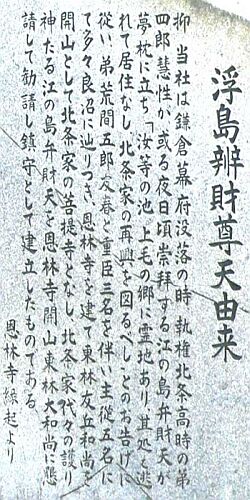 浮島辨財尊天由来
抑当社は鎌倉幕府没落の時執権北条高時の弟
四郎慧性が或る夜日頃崇拜する江の島弁財天が
夢枕に立ち「汝等の池上毛の郷に霊地あり其処と逃
れて居住なし北条家の再興を図るべしとのお告げに
従い弟荒間五郎友春と重臣三名を伴い主従五名に
て多々良沼に辿りつき恩林寺を建て東林友丘和尚を
開山として北条家の菩提寺となし北条家代々の護り
神たる江の島弁財天を恩林寺開山東林大和尚に懇
請して勧請し鎮守として建立したものである
恩林寺縁起より